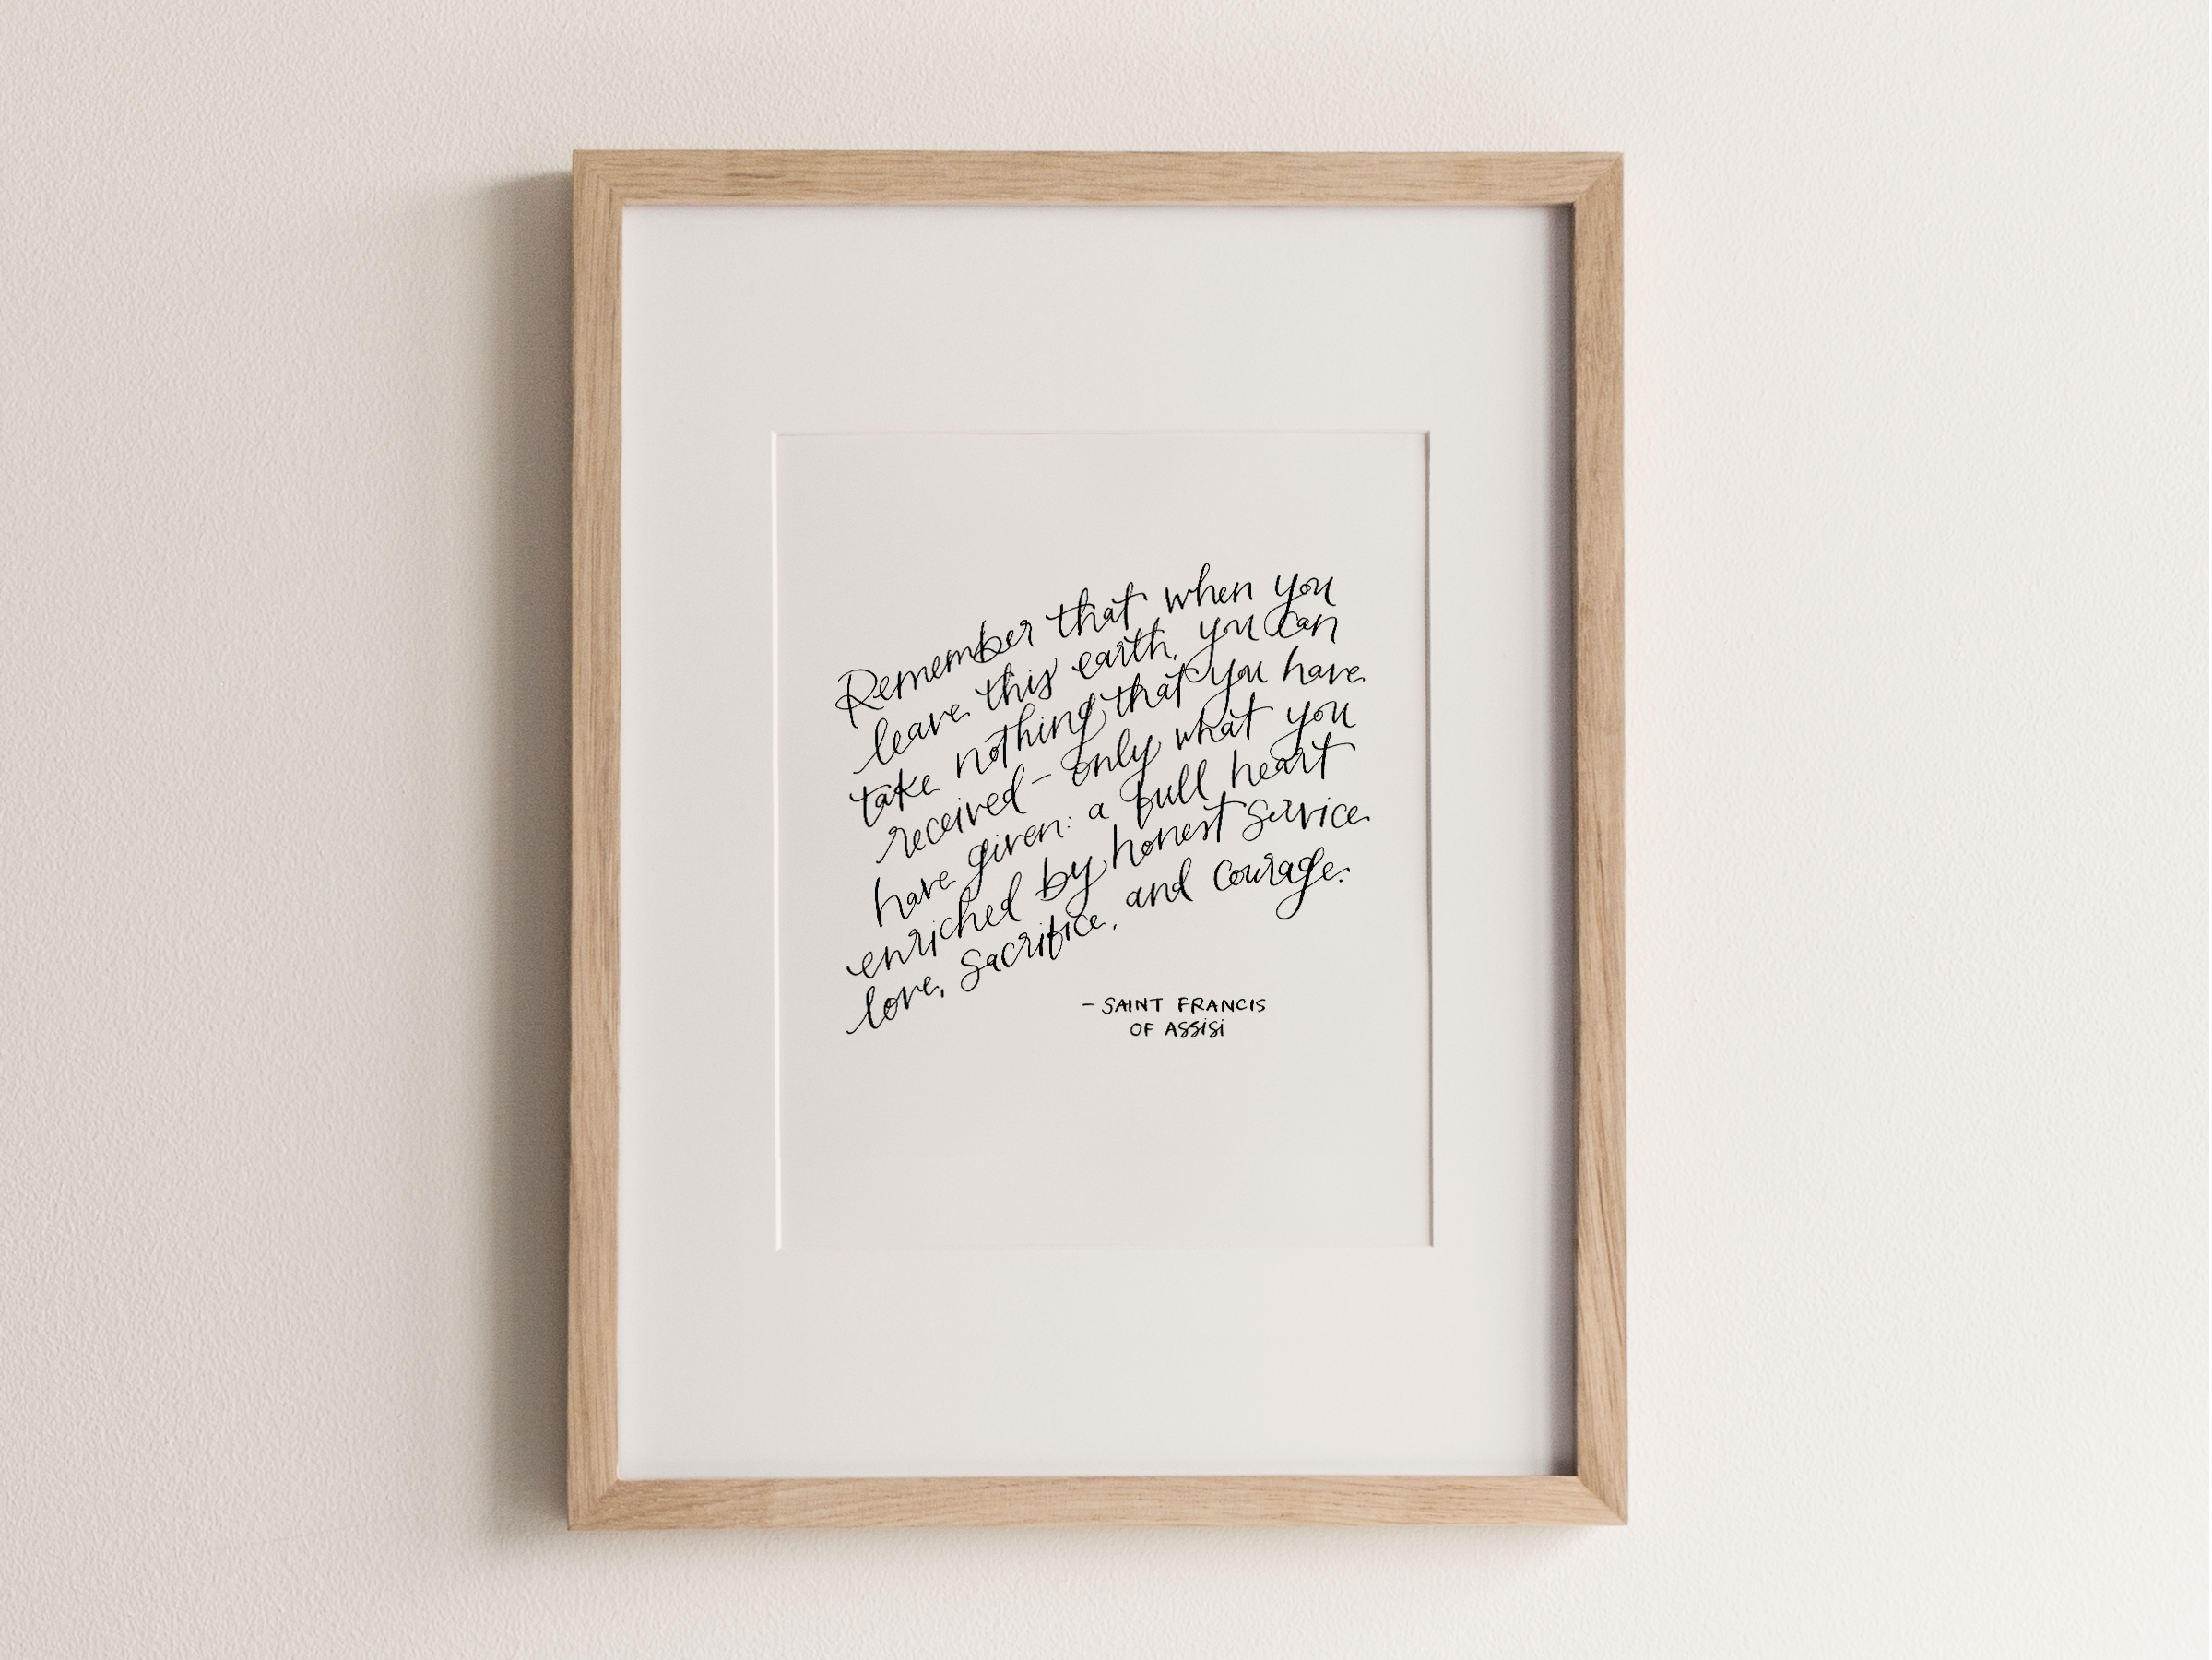 Remember that when you
leave this earth, you can
take nothing that you have
received – only what you
have given: a full heart
enriched by honest service
love, sacrifice, and courage.
– SAINT FRANCIS
OF ASSISI